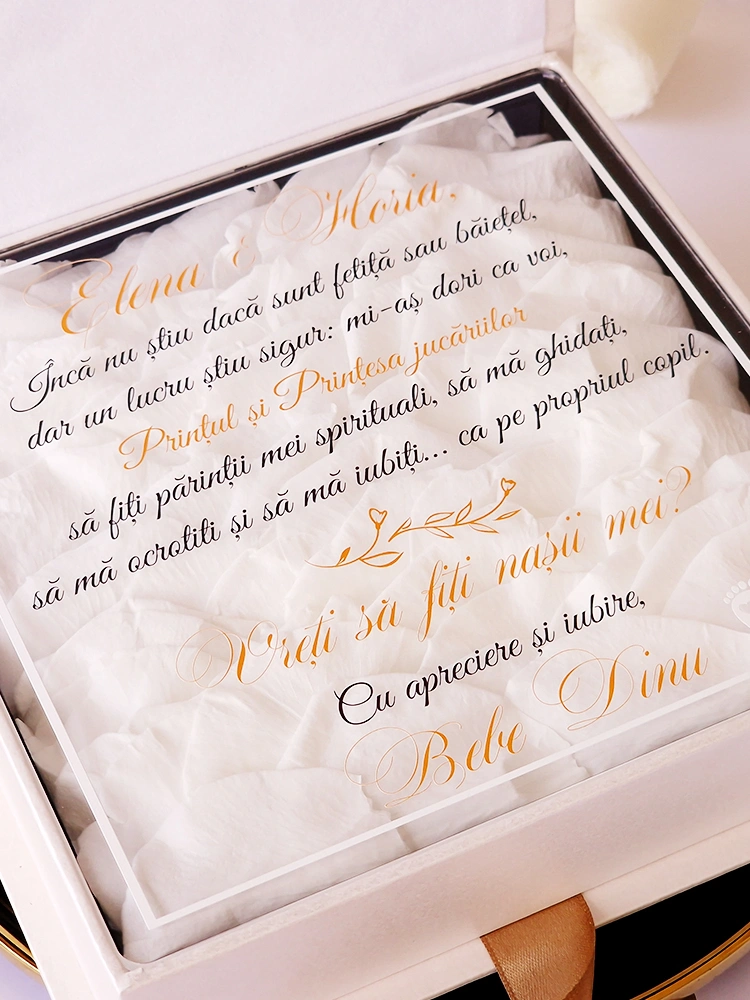 Elena & Floria,
Încă nu știu dacă sunt fetiță sau băiețel,
dar un lucru știu sigur: mi-aș dori ca voi,
Prințul și Prințesa jucăriilor
să fiți părinții mei spirituali, să mă ghidați,
să mă ocrotiti și să mă iubiți... ca pe propriul copil.
Vreți să fiți nașii mei?
Cu apreciere și iubire,
Bebe Dinu